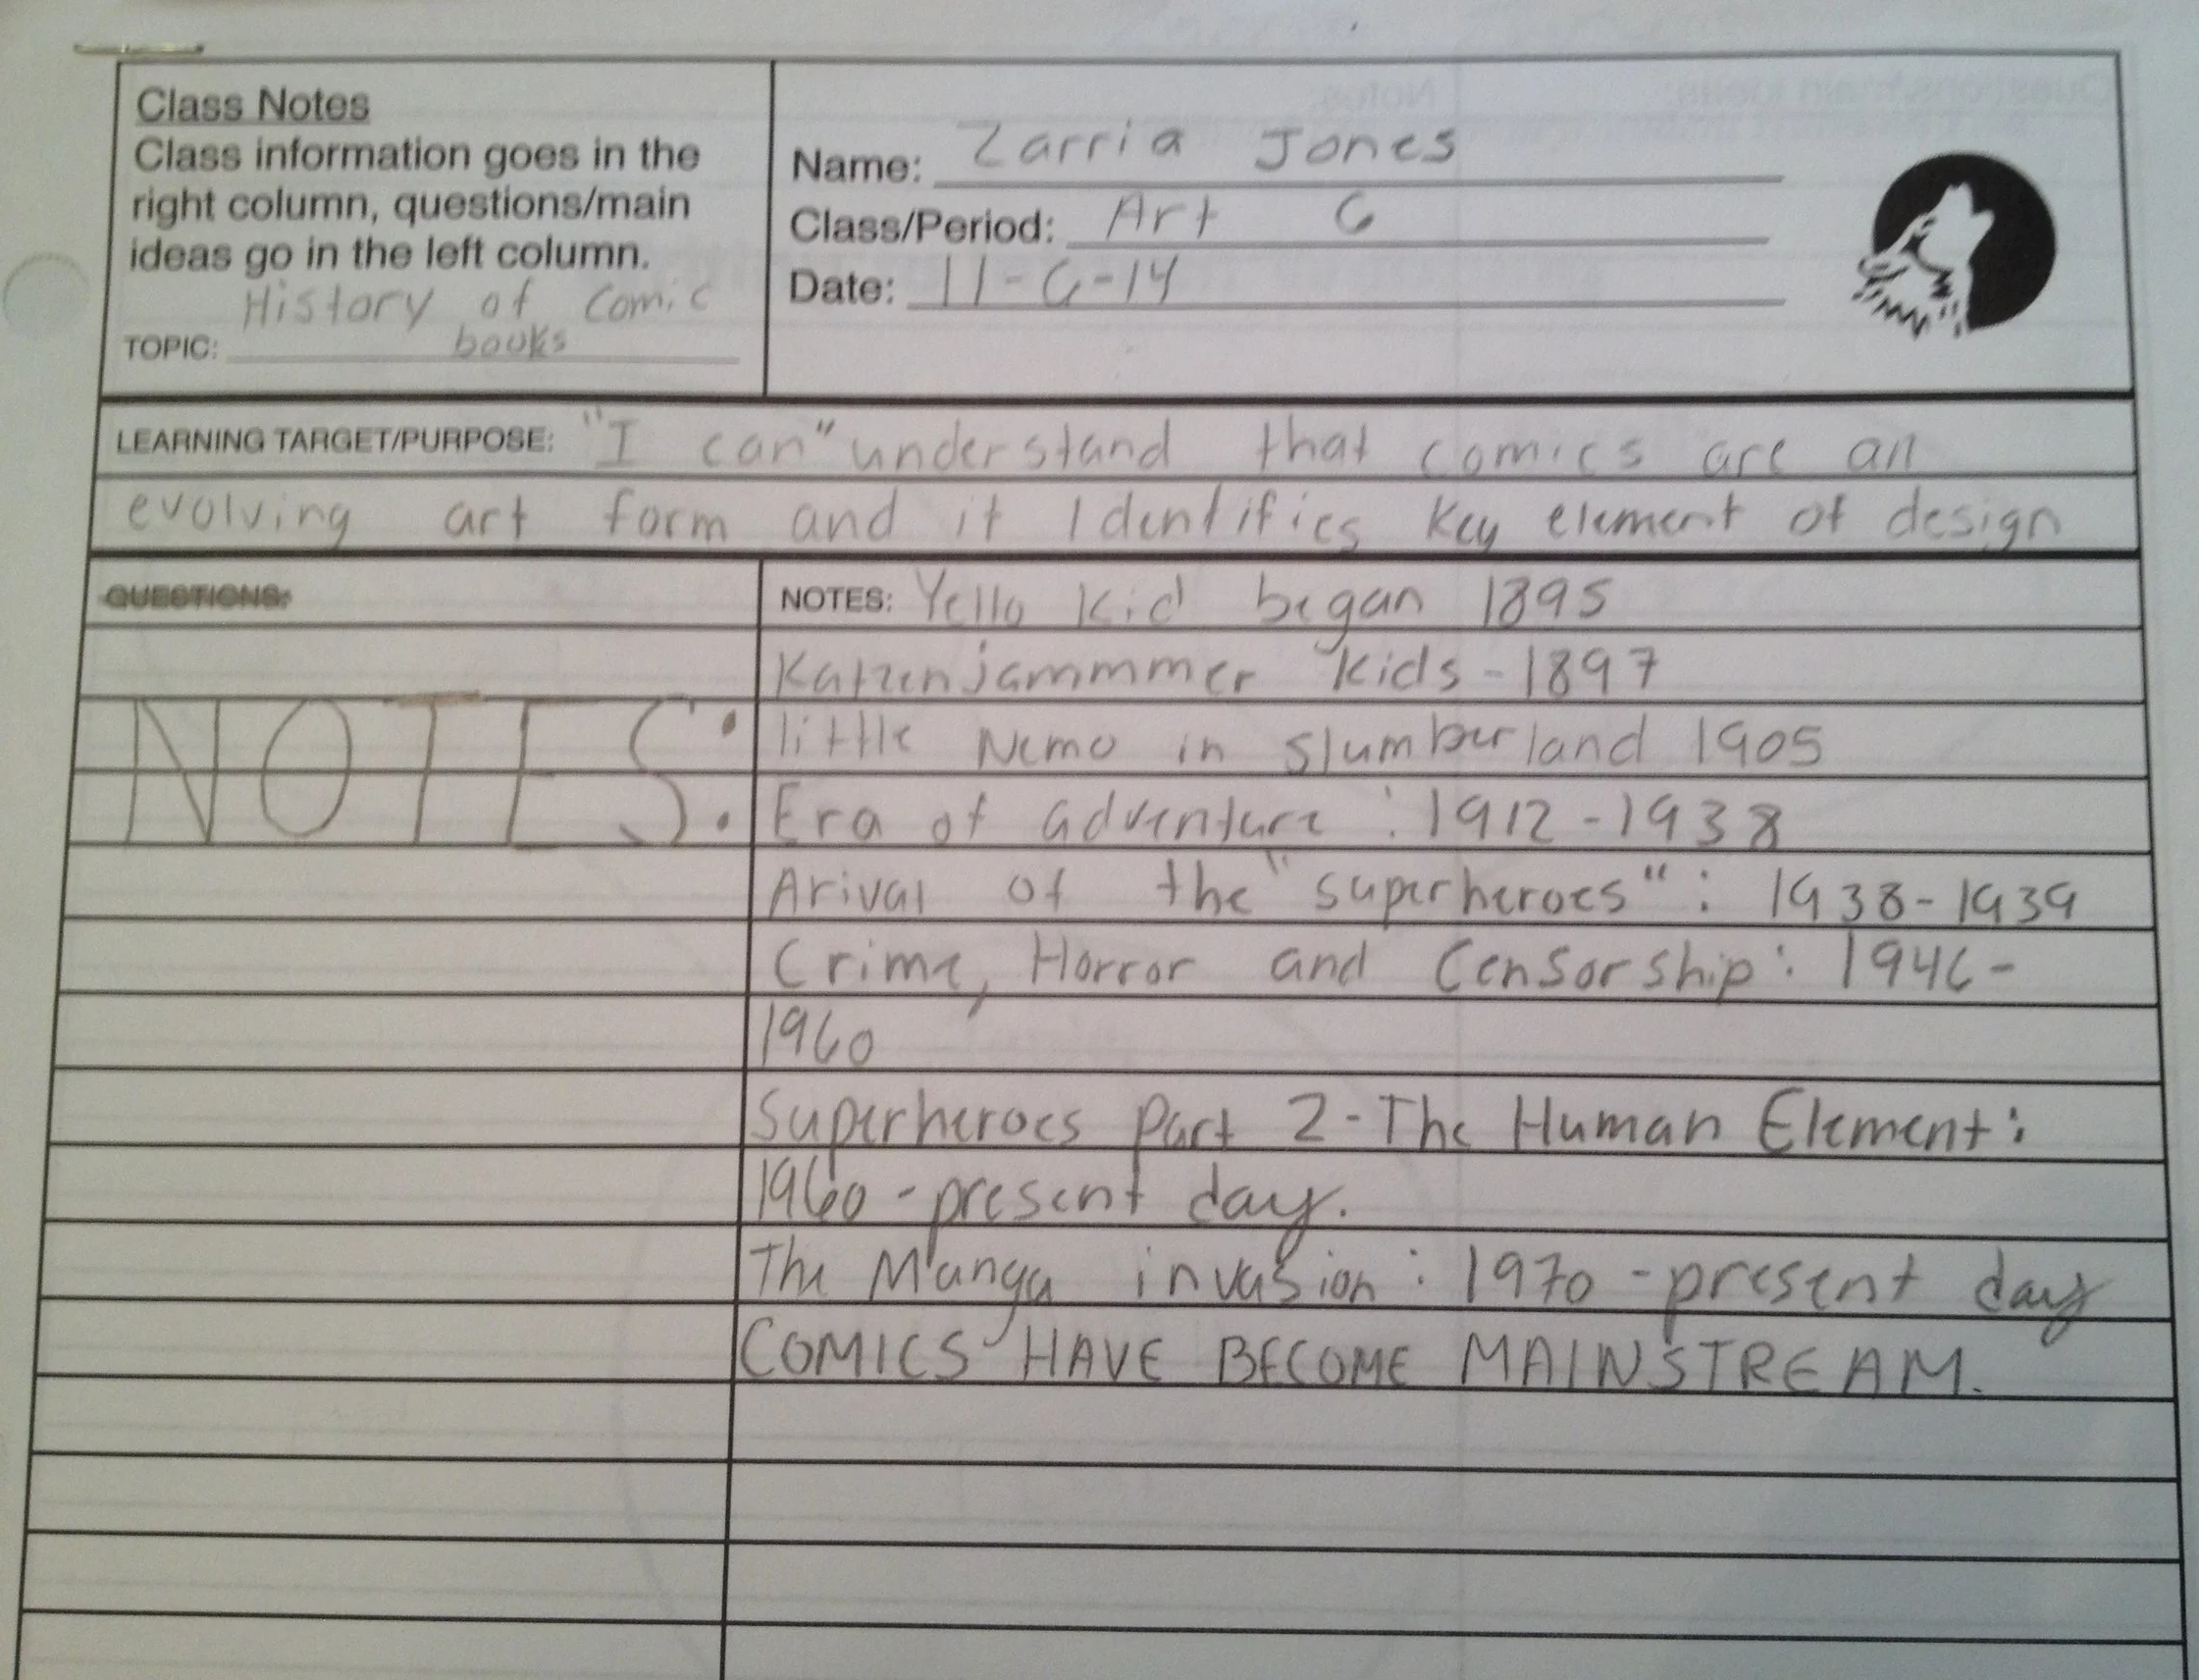 Class Notes
Class information goes in the
right column, questions/main
ideas go in the left column.
History of comic
TOPIC: books
Name: Zarria Jones
Class/Period: Art 6
Date: 11-6-14
LEARNING TARGET/PURPOSE: "I can" understand that comics are an
evolving art form and it Identifies key element of design
QUESTIONS:
NOTES:
NOTES: Yello Kid began 1895
Katzenjammmer Kids - 1897
little Nemo in slumberland 1905
Era of adventure : 1912 - 1938
Arival of the "superheroes" : 1938 - 1939
Crime, Horror and Censorship : 1946 -
1960
Superheroes Part 2 - The Human Element :
1960 - present day.
The Manga invasion : 1970 - present day
COMICS HAVE BECOME MAINSTREAM.